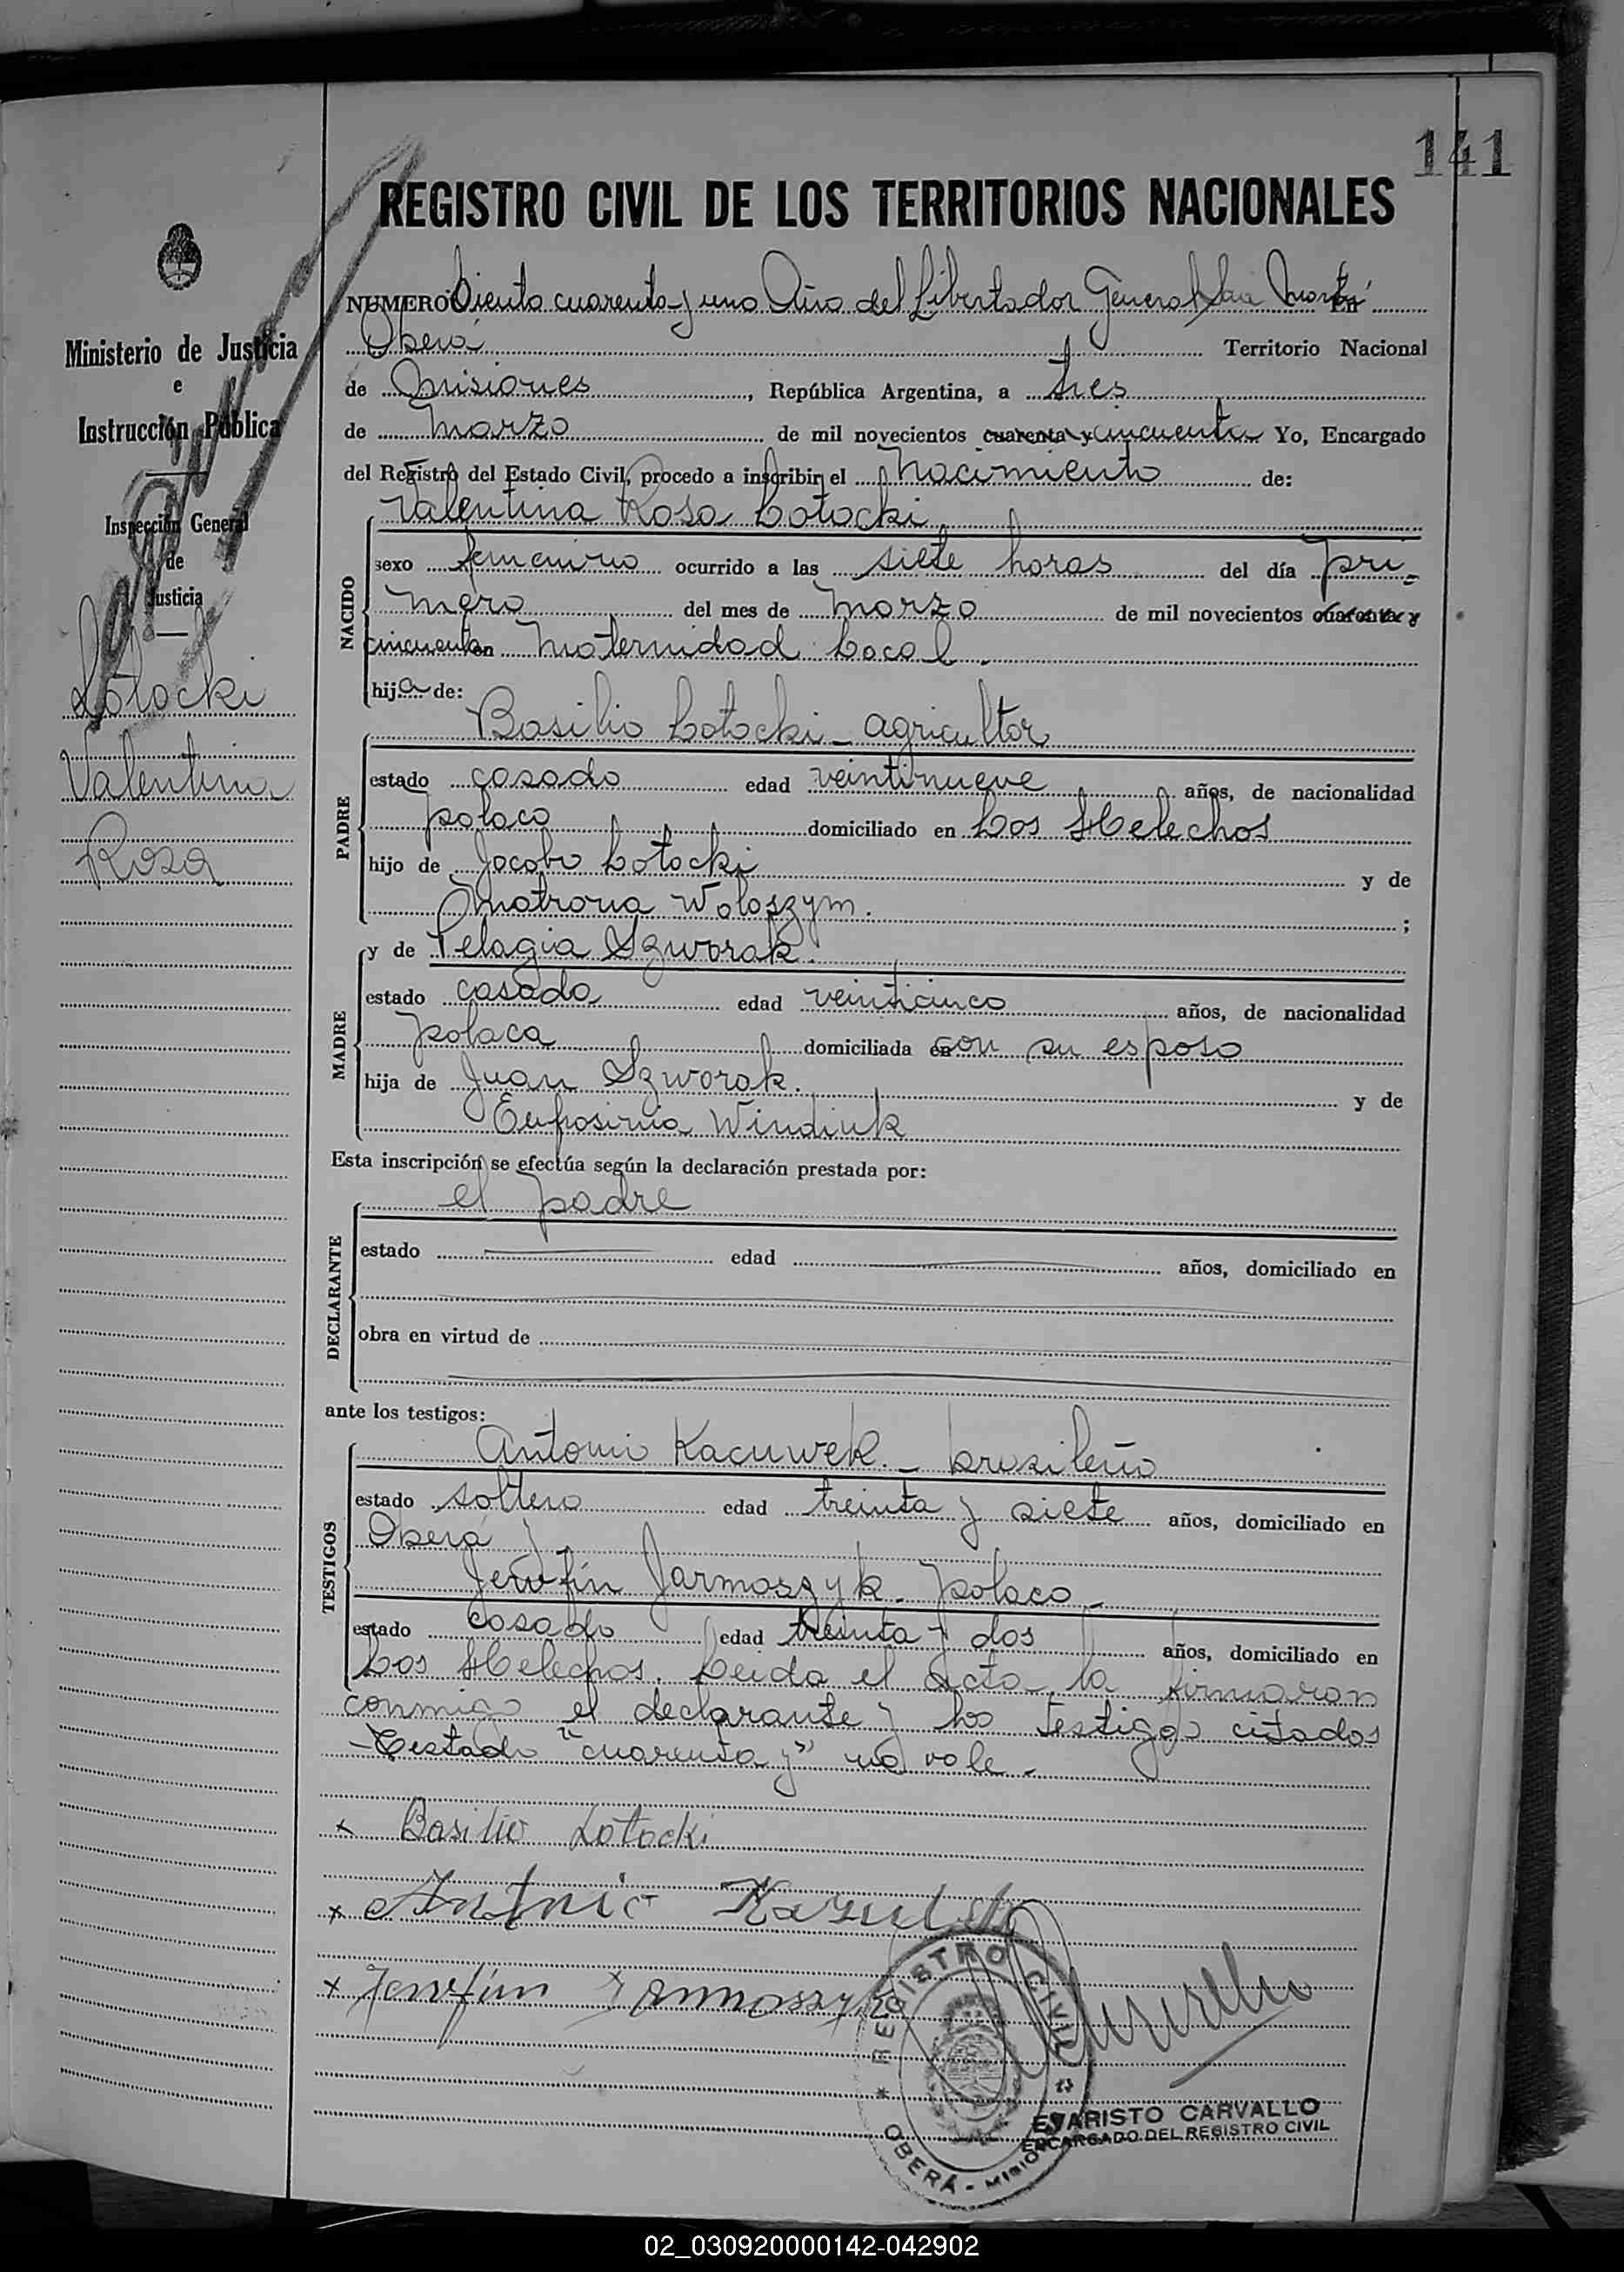 141
REGISTRO CIVIL DE LOS TERRITORIOS NACIONALES
NUMERO Ciento cuarenta y uno Año del Libertador General San Martín En
Oberá Territorio Nacional
de Misiones, República Argentina, a tres
de Marzo de mil novecientos cuarenta y cincuenta Yo, Encargado
del Registro del Estado Civil, procedo a inscribir el Nacimiento de:
Valentina Rosa Lotocki
NACIDO
sexo femenino ocurrido a las siete horas del día pri-
mero del mes de Marzo de mil novecientos cuarenta y
cincuenta en Maternidad Local.
hija de:
PADRE
Basilio Lotocki - agricultor
estado casado edad veintinueve años, de nacionalidad
polaco domiciliado en Los Helechos
hijo de Jacobo Lotocki y de
Matrona Woloszym. ;
MADRE
y de Pelagia Szworak.
estado casada edad veinticinco años, de nacionalidad
polaca domiciliada en con su esposo
hija de Juan Szworak. y de
Eufrosinia Windiuk
Esta inscripción se efectúa según la declaración prestada por:
DECLARANTE
el padre
estado edad años, domiciliado en
obra en virtud de
ante los testigos:
TESTIGOS
Antonio Kacuwek. - brasileño
estado soltero edad treinta y siete años, domiciliado en
Oberá y
Jerofin Jarmoszyk - polaco -
estado casado edad treinta y dos años, domiciliado en
Los Helechos. Leida el acta la firmaron
conmigo el declarante y los testigos citados
- Testado "cuarenta y" no vale -
x Basilio Lotocki
x Antonio
x Jarmoszyk
REGISTRO CIVIL
* OBERÁ - MISIONES *
EVARISTO CARVALLO
ENCARGADO DEL REGISTRO CIVIL
Ministerio de Justicia
e
Instrucción Pública
Inspección General
de
Justicia
Lotocki
Valentina
Rosa
02_030920000142-042902